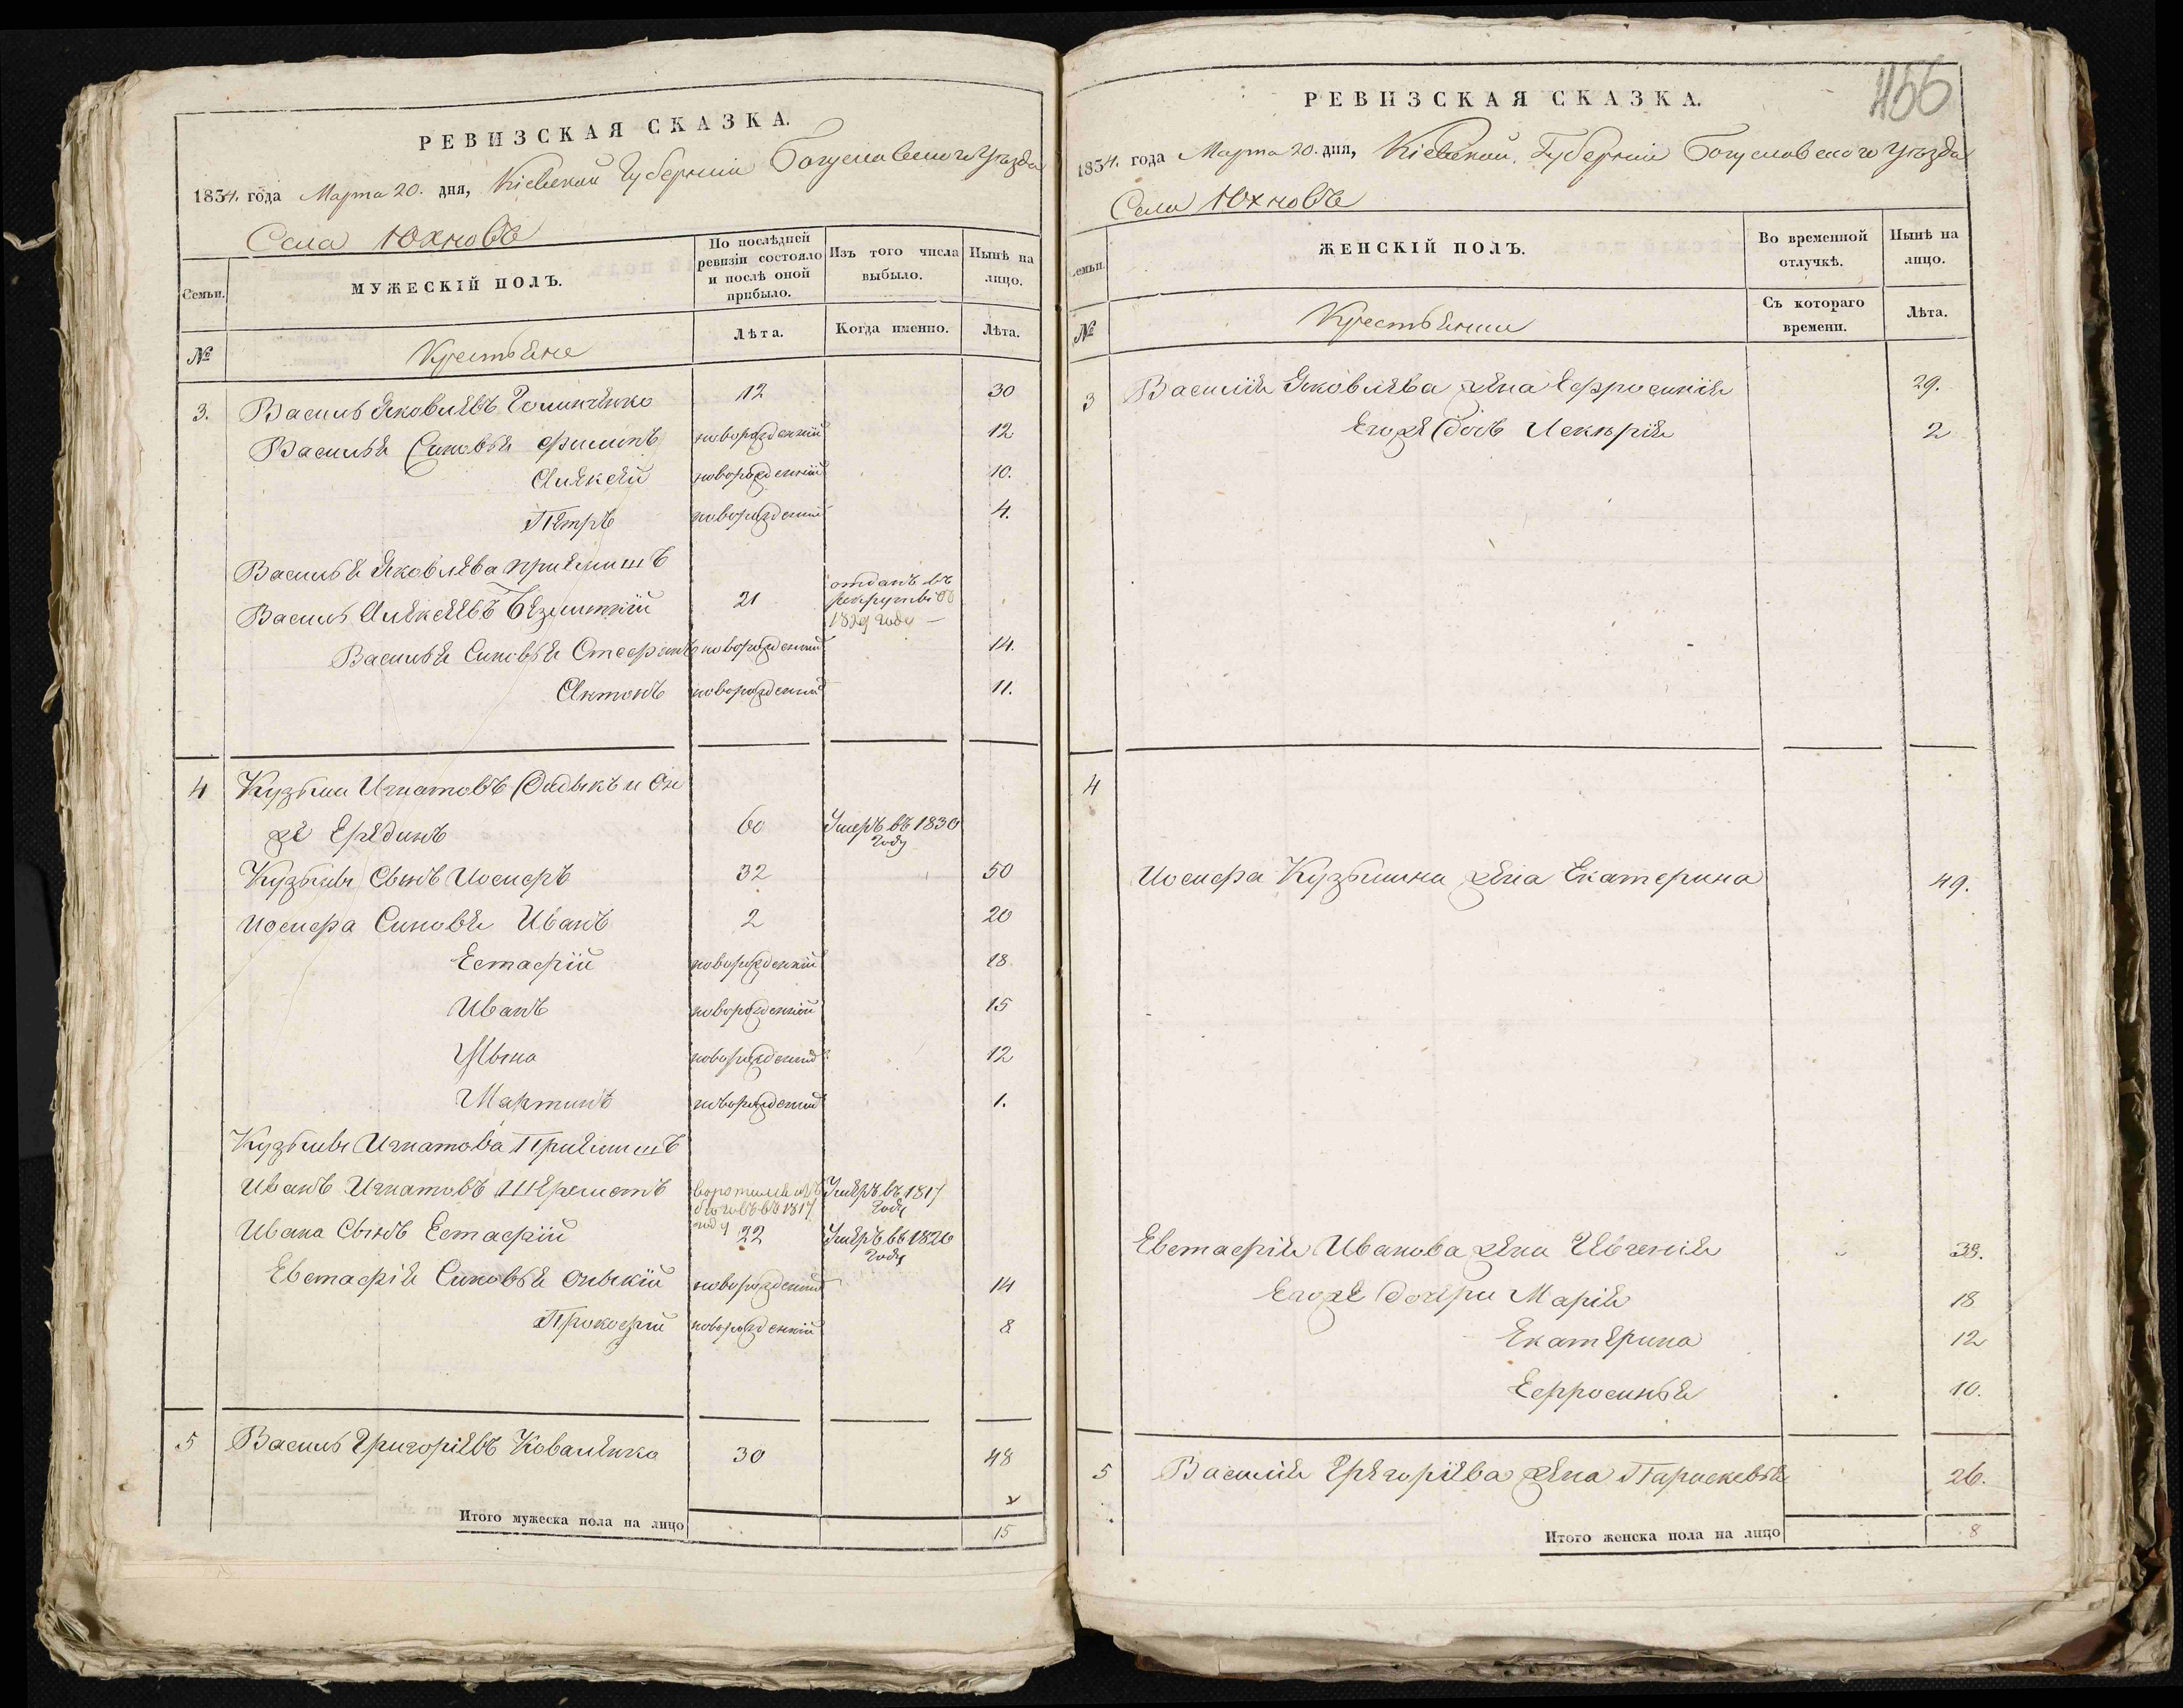 РЕВИЗСКАЯ СКАЗКА.
1834. года Марта 20. дня, Кіевской Губерніи Богуславского Уѣзда
Села Юхновъ
Семьи. МУЖЕСКІЙ ПОЛЪ. По послѣдней ревизіи состояло и послѣ оной прибыло. Изъ того числа выбыло. Нынѣ на лицо.
№ Крестьяне Лѣта. Когда именно. Лѣта.
3. Василь Яковлевъ 12 30
Василья Сыновья Филипъ новорожденный 12
Алексей новорожденный 10.
Петръ новорожденный 4.
Василья Яковлева приемышъ
Василь Алексеевъ 21 отданъ въ рекруты въ 1829 году
Василья Сыновья Стефанъ новорожденный 14.
Антонъ новорожденный 11.
4 Кузьма Игнатовъ Дядыкъ и Он
же Ерединъ 60 Умеръ въ 1830 году
Кузьмы Сынъ Иосифъ 32 50
Иосифа Синовя Иванъ 2 20
Естафій новорожденный 18
Иванъ новорожденный 15
новорожденный 12
Мартинъ новорожденный 1.
Кузьмы Игнатова Приемышъ
Иванъ Игнатовъ Шереметъ воротился изъ бѣговъ въ 1817 году Умеръ въ 1817 году
Ивана Сынъ Естафій 22 Умеръ въ 1826 году
Евстафія Сыновья новорожденный 14
Прокофій новорожденный 8
5 Василь Григоріевъ Коваленко 30 48
Итого мужеска пола на лицо 15
456
РЕВИЗСКАЯ СКАЗКА.
1834. года Марта 20. дня, Кіевской Губерніи Богуславского Уѣзда
Села Юхновъ
Семьи. ЖЕНСКІЙ ПОЛЪ. Во временной отлучкѣ. Нынѣ на лицо.
№ Крестьянки Съ котораго времени. Лѣта.
3 Василія Яковлева жена Ефросинія 29.
Егоже дочь 2
4
Иосифа Кузьмина жена Екатерина 49.
Евстафія Иванова жена Евгенія 38.
Егоже дочери Марія 18
Екатерина 12
Ефросинья 10.
5 Василія Григоріева жена Параскевья 26.
Итого женска пола на лицо 8